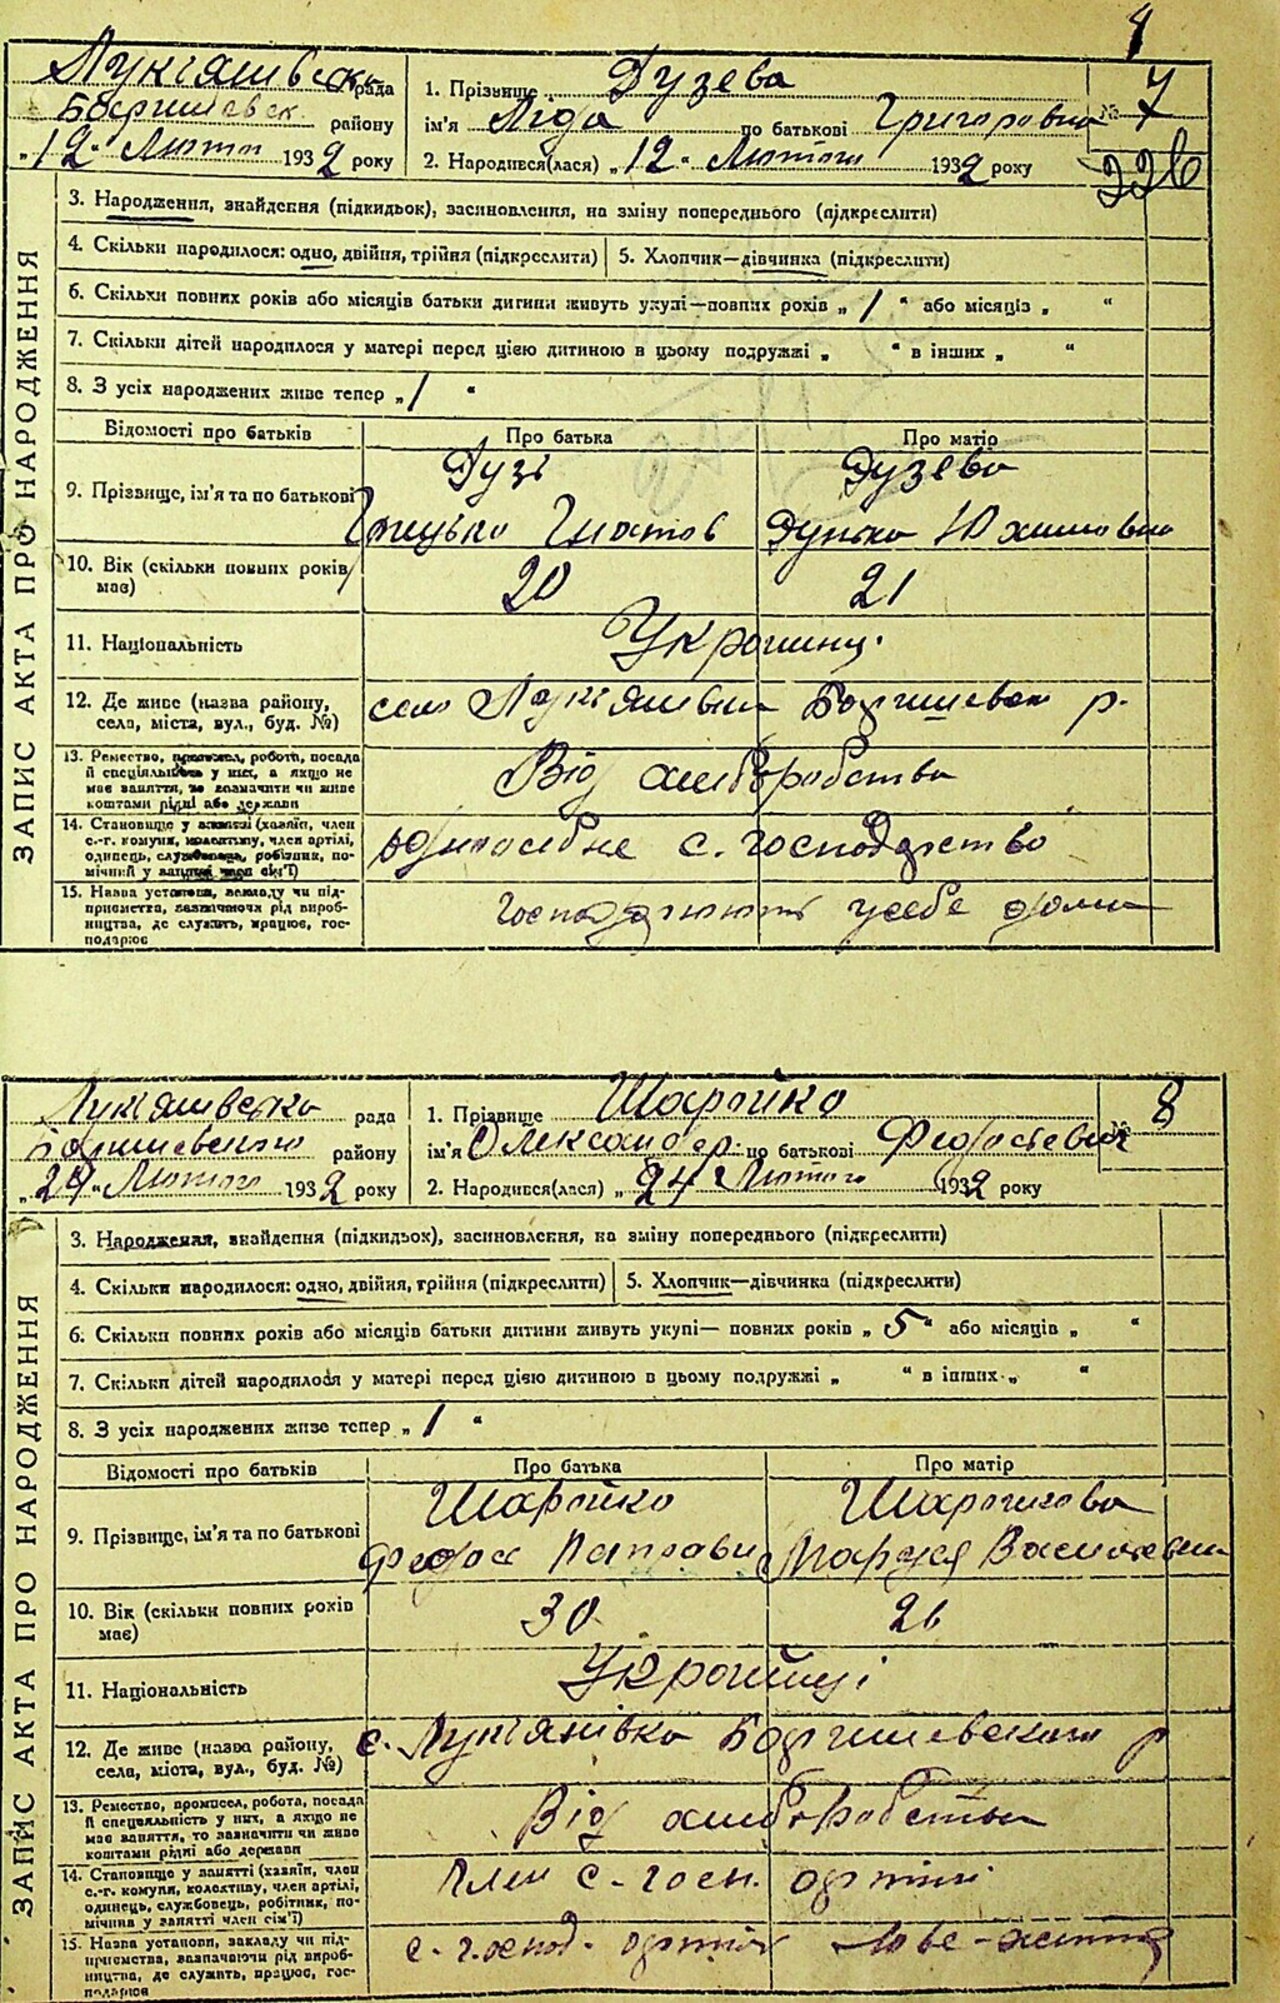 Лукіянівська рада
1. Прізвище Гузева
7
району
ім'я Ліда по батькові Григоровна
№
"12" Лютого 1932 року
2. Народився(лася) "12" Лютого 1932 року
226
ЗАПИС АКТА ПРО НАРОДЖЕННЯ
3. Народження, знайдення (підкидьок), засиновлення, на зміну попереднього (підкреслити)
4. Скільки народилося: одно, двійня, трійня (підкреслити)
5. Хлопчик—дівчинка (підкреслити)
6. Скільки повних років або місяців батьки дитини живуть укупі—повних років „ 1 “ або місяців „ “
7. Скільки дітей народилося у матері перед цією дитиною в цьому подружжі „ “ в інших „ “
8. З усіх народжених живе тепер „ 1 “
Відомості про батьків
Про батька
Про матір
9. Прізвище, ім'я та по батькові
Гузь
Гузева
Грицько Гнатов
Дунька Юхимовна
10. Вік (скільки повних років має)
20
21
11. Національність
Українці
12. Де живе (назва району,
села, міста, вул., буд. №)
село Лукіянівка р.
13. Ремество, промисел, робота, посада
й спеціяльність у них, а якщо не
має заняття, то зазначити чи живе
коштами рідні або держави
Від хліборобства
14. Становище у занятті (хазяїн, член
с.-г. комуни, колективу, член артілі,
одинець, службовець, робітник, по-
мічний у занятті член сім'ї)
одноосібне с. господарство
15. Назва установи, закладу чи під-
приємства, зазначаючи рід вироб-
ництва, де служить, працює, гос-
подарює
господарюють у себе дома
рада
1. Прізвище Шарайко
№ 8
району
ім'я Олександер по батькові Федосієвич
"24" Лютого 1932 року
2. Народився(лася) „ 24 “ Лютого 1932 року
ЗАПИС АКТА ПРО НАРОДЖЕННЯ
3. Народження, знайдення (підкидьок), засиновлення, на зміну попереднього (підкреслити)
4. Скільки народилося: одно, двійня, трійня (підкреслити)
5. Хлопчик—дівчинка (підкреслити)
6. Скільки повних років або місяців батьки дитини живуть укупі— повних років „ 5 “ або місяців „ “
7. Скільки дітей народилося у матері перед цією дитиною в цьому подружжі „ “ в інших „ “
8. З усіх народжених живе тепер „ 1 “
Відомості про батьків
Про батька
Про матір
9. Прізвище, ім'я та по батькові
Шарайко
Шарайкова
Федос
Маруся Василевна
10. Вік (скільки повних років
має)
30
26
11. Національність
Українці
12. Де живе (назва району,
села, міста, вул., буд. №)
с. Лукіянівка р
13. Ремество, промисел, робота, посада
й спеціяльність у них, а якщо не
має заняття, то зазначити чи живе
коштами рідні або держави
Від хліборобства
14. Становище у занятті (хазяїн, член
с.-г. комуни, колективу, член артілі,
одинець, службовець, робітник, по-
мічний у занятті член сім'ї)
Член с.-госп. артілі
15. Назва установи, закладу чи під-
приємства, зазначаючи рід вироб-
ництва, де служить, працює, гос-
подарює
с.-господ. артіль